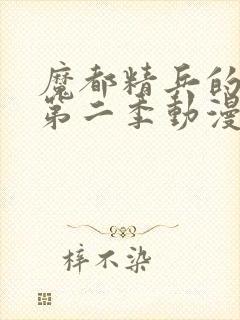 魔都精兵的
第二季動漫
梓不染